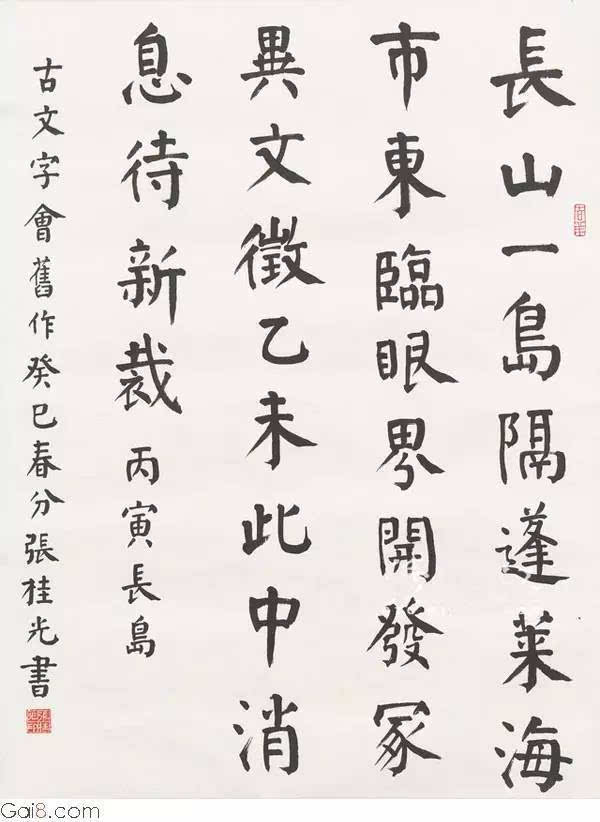 長山一島隔蓬萊海
市東臨眼界開發冢
異文徵乙未此中消
息待新裁 丙寅長島
古文字會舊作癸巳春分張桂光書
Gai8.com